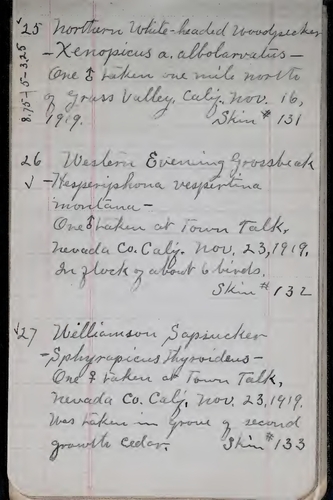 √25 Northern White-headed Woodpecker
- Xenopicus a. albolarvatus -
One ♀ taken one mile north
of Grass Valley, Calif. Nov. 16,
1919. Skin # 131
8.75-5-3.25
26 Western Evening Grossbeak
√ - Hesperiphona vespertina
montana -
One ♀ taken at Town Talk,
Nevada Co. Calif. Nov. 23, 1919.
In flock of about 6 birds.
Skin # 132
√27 Williamson Sapsucker
- Sphyrapicus thyroideus -
One ♀ taken at Town Talk,
Nevada Co. Calif. Nov. 23, 1919.
Was taken in grove of second
growth cedar. Skin # 133